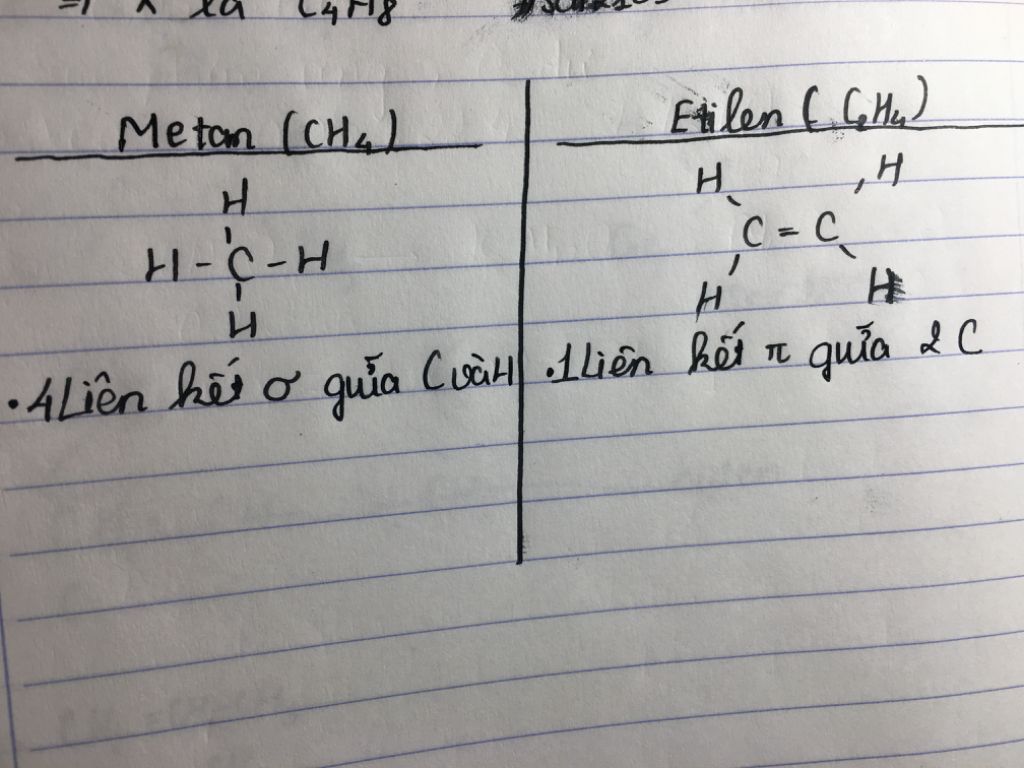 C4H8
Metan (CH4)
H
H - C - H
H
. 4 Liên kết σ guĩa C và H
Etilen (C2H4)
H H
C = C
H H
. 1 Liên kết π guĩa 2 C